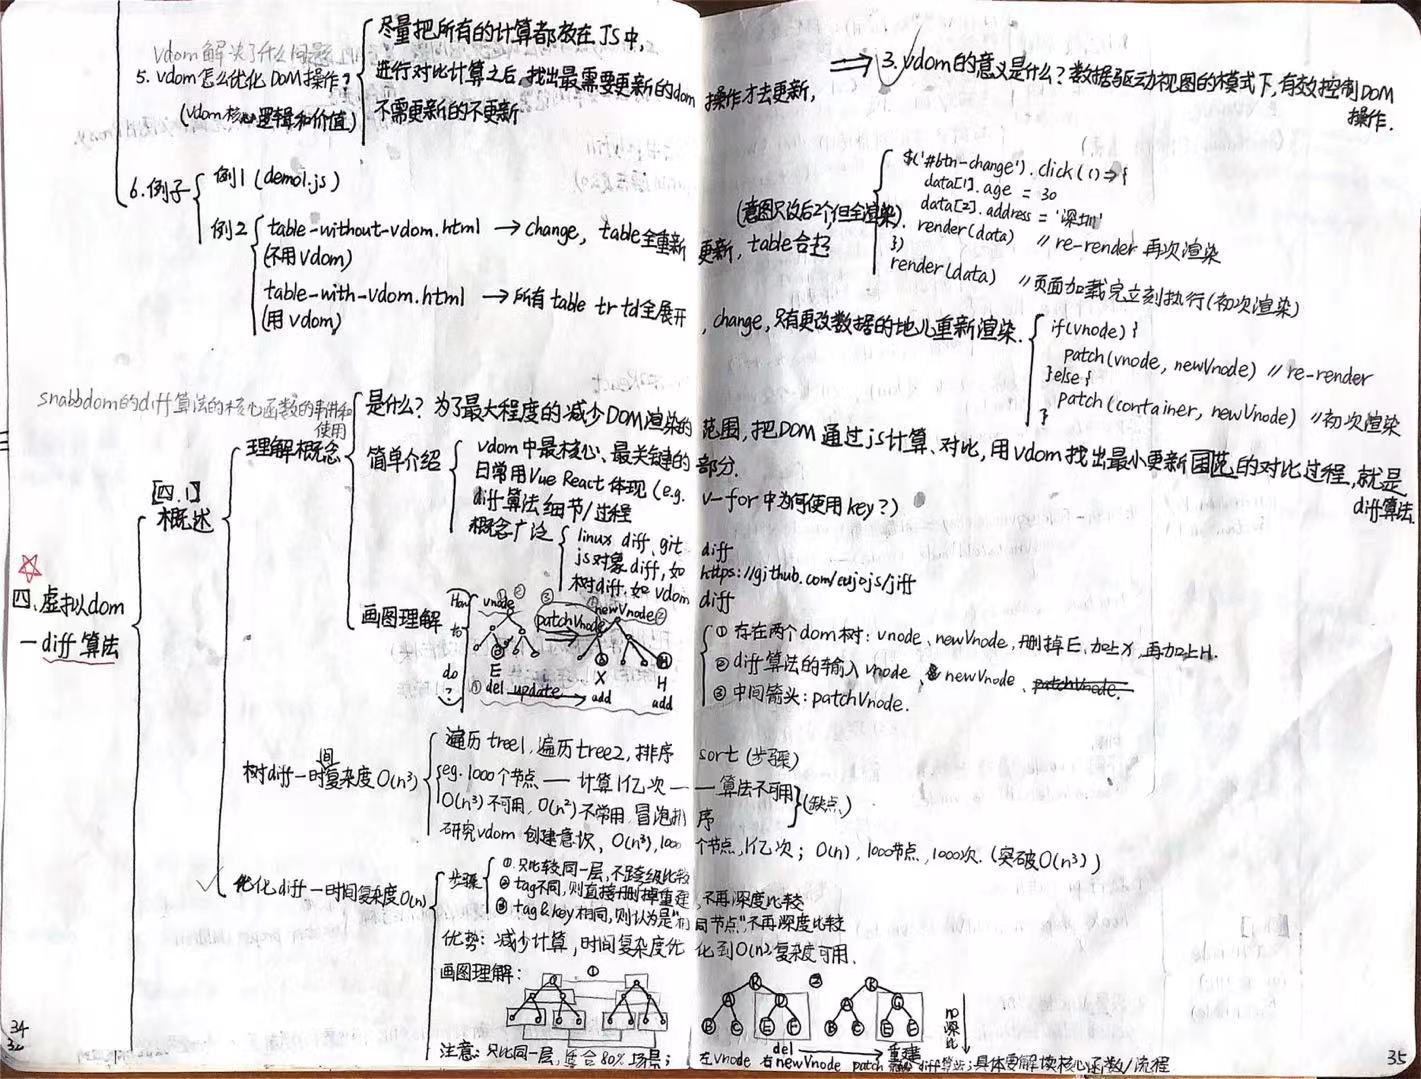 vdom解决了什么问题
5. vdom怎么优化DOM操作?
(vdom核心逻辑和价值)
尽量把所有的计算都放在JS中,
进行对比计算之后,找出最需要更新的dom操作才去更新,
不需更新的不更新
3. vdom的意义是什么?数据驱动视图的模式下,有效控制DOM
操作.
6.例子
例1 (demo1.js)
例2
table-without-vdom.html → change, table全重新更新, table合起
(不用vdom)
(意图只改后2个,但全渲染)
$('#btn-change').click(()=>{
data[1].age = 30
data[2].address = '深圳'
render(data) // re-render 再次渲染
})
render(data) // 页面加载完立刻执行(初次渲染)
table-with-vdom.html → 所有 table tr td全展开, change, 只有更改数据的地儿重新渲染.
(用vdom)
if(vnode) {
patch(vnode, newVnode) // re-render
}else{
patch(container, newVnode) // 初次渲染
}
四.虚拟dom
—diff算法
[四.1]
概述
snabbdom的diff算法的核心函数的事讲和
使用
理解概念
是什么? 为了最大程度的减少DOM渲染的范围,把DOM通过js计算、对比,用vdom找出最小更新范围的对比过程,就是
diff算法.
简单介绍
vdom中最核心、最关键的部分.
日常用Vue React体现 (e.g. v-for中为何使用key?)
diff算法细节/过程
概念广泛
linux diff、git diff
js对象diff,如 https://github.com/cujojs/jiff
树diff,如vdom diff
画图理解
How
to
do
?
vnode
① ② ③
patchVnode
newVnode②
E
X
H
H
① del update add add
① 存在两个dom树: vnode、newVnode,删掉E、加上X,再加上H.
② diff算法的输入vnode、newVnode、patchVnode.
③ 中间箭头: patchVnode.
树diff—时间复杂度O(n³)
遍历tree1,遍历tree2,排序sort (步骤)
eg. 1000个节点 — 计算1亿次 — 算法不可用
O(n³)不可用, O(n²)不常用,冒泡排序
(缺点)
研究vdom创建意识, O(n³),1000个节点,1亿次; O(n), 1000节点,1000次. (突破O(n³))
优化diff—时间复杂度O(n)
步骤
①.只比较同一层,不跨级比较
② tag不同,则直接删掉重建,不再深度比较
③ tag&key相同,则认为是"相同节点",不再深度比较
优势: 减少计算,时间复杂度优化到O(n)复杂度可用.
画图理解:
①
②
R
A D
B C E F
R
A G
B C E F
del → 重建
no深比
注意: 只比同一层,适合80%场景; 左vnode 右newVnode patch diff算法;具体要解读核心函数/流程
34
32
35